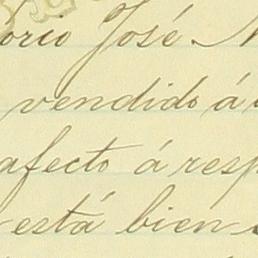 orio José
vendido á
afecto á resp
está bien